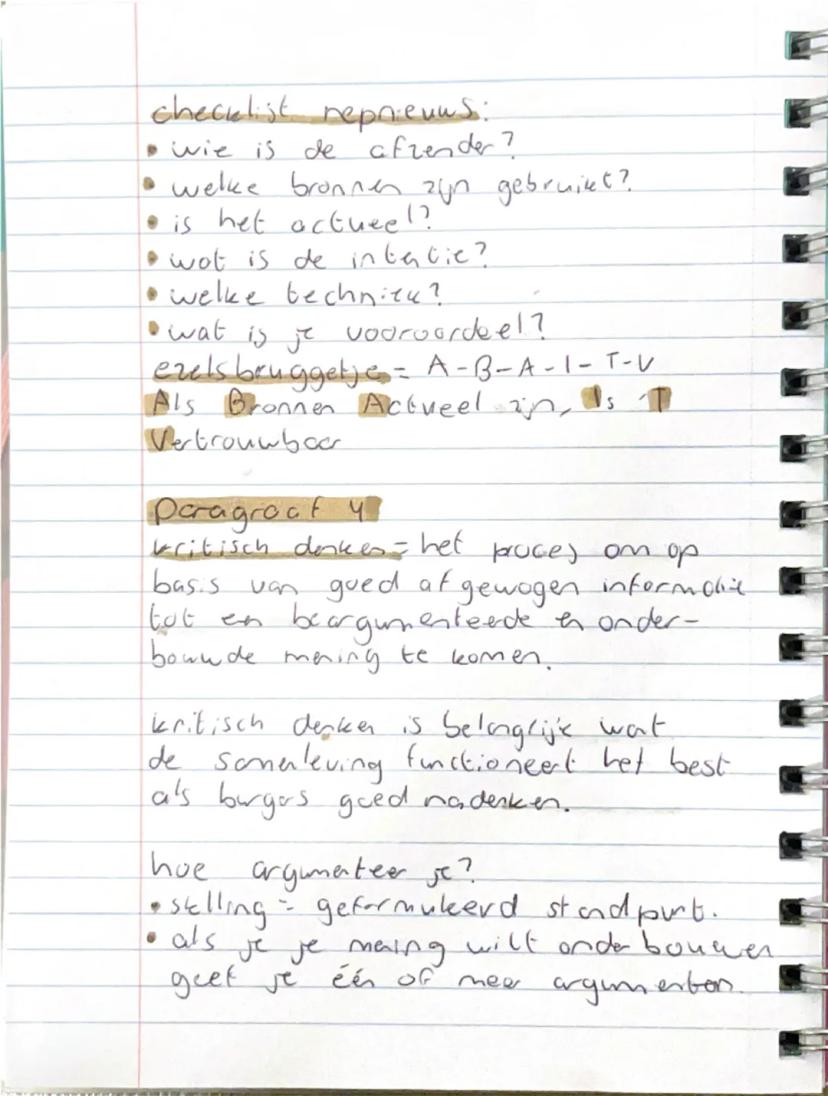 checklist nepnieuws:
• wie is de afzender?
• welke bronnen zijn gebruikt?
• is het actueel?
• wat is de intentie?
• welke techniek?
• wat is je vooroordeel?
ezelsbruggetje = A-B-A-I-T-V
Als Bronnen Actueel zijn, Is T
Vertrouwbaar

Paragraaf 4
kritisch denken = het proces om op
basis van goed afgewogen informatie
tot en beargumenteerde en onder-
bouwde mening te komen.

kritisch denken is belangrijk want
de samenleving functioneert het best
als burgers goed nadenken.

hoe argumenteer je?
• stelling = geformuleerd standpunt.
• als je je mening wilt onderbouwen
geef je één of meer argumenten.